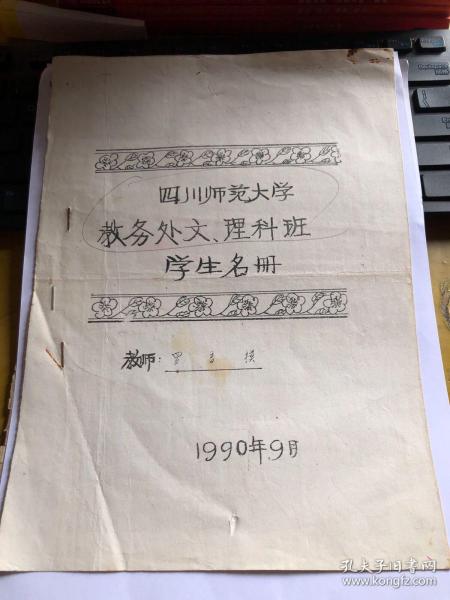 四川师范大学
教务处文、理科班
学生名册
教师:
1990年9月
孔夫子旧书网
www.kongfz.com